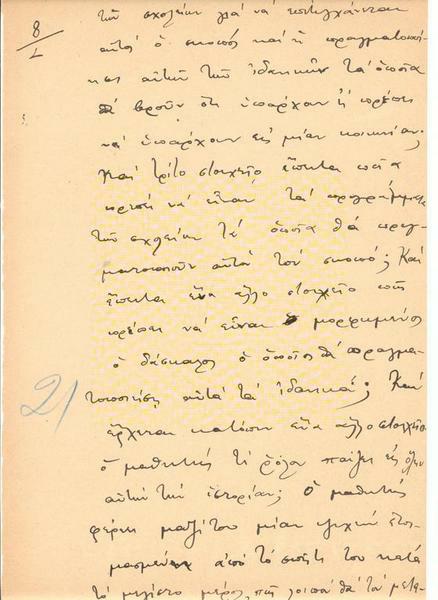 8/1
τῶν σχολείων γιά νά ἐπιτυγχάνεται
αὐτός ὁ σκοπός καί ἡ πραγματοποί-
ησις αὐτῶν τῶν ἰδανικῶν τά ὁποῖα
θά βροῦν ὅτι ὑπάρχουν ἤ πρέπει
νά ὑπάρχουν εἰς μίαν κοινωνίαν;
Καί τρίτο στοιχεῖο ἔπειτα ποῖα
πρέπει νά εἶναι τά προγράμματα
τῶν σχολείων τά ὁποῖα θά πραγ-
ματοποιοῦν αὐτόν τόν σκοπό; Καί
ἔπειτα ἕνα ἄλλο στοιχεῖο πῶς
πρέπει νά εἶναι μορφωμένος
ὁ δάσκαλος ὁ ὁποῖος θά πραγμα-
τοποιήση αὐτά τά ἰδανικά; Καί
ἔρχεται κατόπιν ἕνα ἄλλο στοιχεῖο
ὁ μαθητής τί ρόλον παίζει εἰς ὅλην
αὐτήν τήν ἱστορίαν; Ὁ μαθητής
φέρει μαζί του μίαν ψυχήν ἑτοι-
μασμένην ἀπό τό σπίτι του κατά
τό μέγιστο μέρος, πῶς λοιπόν θά τόν μετα-
21